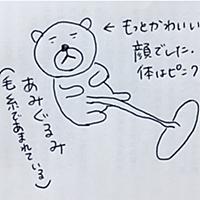 ← もっとかわいい
顔でした。
体はピンク
あみぐるみ
(毛糸であまれている)